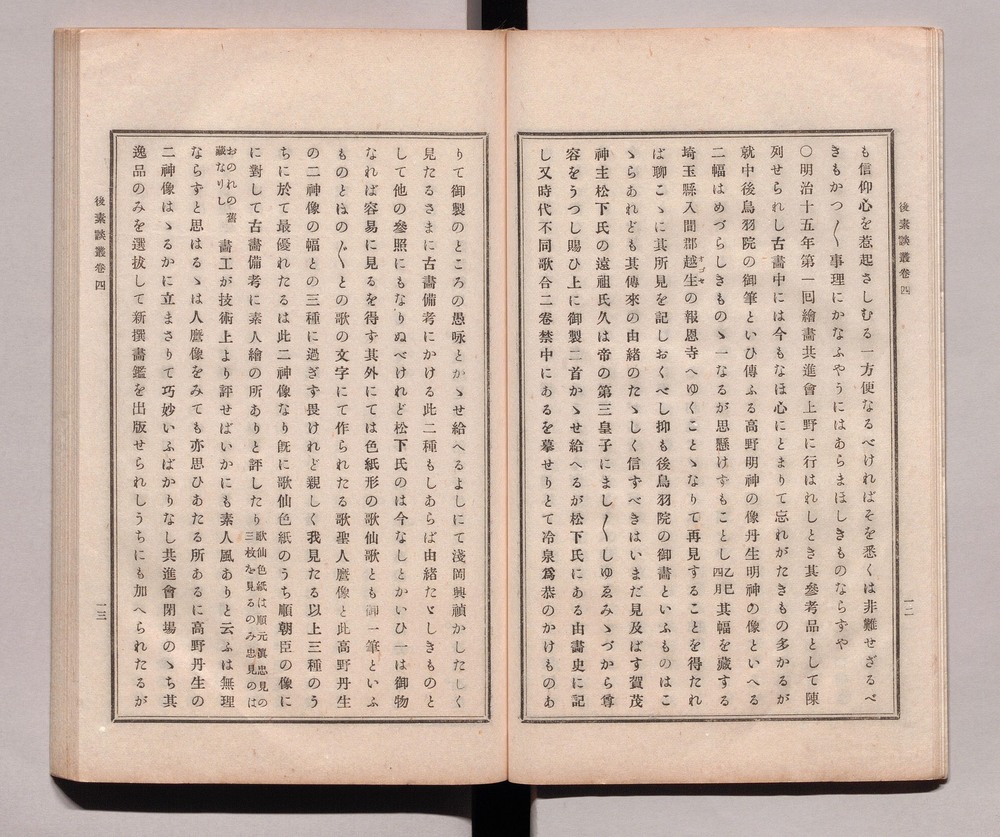 後素談叢卷四
一二
も信仰心を惹起さしむる一方便なるべければそを悉くは非難せざるべ
きもかつ〳〵事理にかなふやうにはあらまほしきものならずや
〇明治十五年第一回繪畫共進會上野に行はれしとき其參考品として陳
列せられし古畫中には今もなほ心にとまりて忘れがたきもの多かるが
就中後鳥羽院の御筆といひ傳ふる高野明神の像丹生明神の像といへる
二幅はめづらしきものゝ一なるが思懸けずもことし乙巳四月其幅を藏する
埼玉縣入間郡越生オゴセの報恩寺へゆくことゝなりて再見することを得たれ
ば聊こゝに其所見を記しおくべし抑も後鳥羽院の御畫といふものはこ
ゝらあれども其傳來の由緒のたゞしく信ずべきはいまだ見及ばず賀茂
神主松下氏の遠祖氏久は帝の第三皇子にまし〳〵しゆゑみゝづから尊
容をうつし賜ひ上に御製二首かゝせ給へるが松下氏にある由畫史に記
し又時代不同歌合二卷禁中にあるを摹せりとて冷泉爲恭のかけものあ
りて御製のところの愚咏とかゝせ給へるよしにて淺岡興禎かしたしく
見たるさまに古畫備考にかける此二種もしあらば由緒たゞしきものと
して他の參照にもなりぬべけれど松下氏のは今なしとかいひ一は御物
なれば容易に見るを得ず其外にては色紙形の歌仙歌とも御一筆といふ
ものとほの〴〵との歌の文字にて作られたる歌聖人麿像と此高野丹生
の二神像の幅との三種に過ぎず畏けれど親しく我見たる以上三種のう
ちに於て最優れたるは此二神像なり旣に歌仙色紙のうち順朝臣の像に
に對して古畫備考に素人繪の所ありと評したり歌仙色紙は順元眞忠見の三枚を見るのみ忠見のは
おのれの舊藏なりし畫工が技術上より評せばいかにも素人風ありと云ふは無理
ならずと思はるゝは人麿像をみても亦思ひあたる所あるに高野丹生の
二神像はゝるかに立まさりて巧妙いふばかりなし其進會閉場のゝち其
逸品のみを選拔して新撰畫鑑を出版せられしうちにも加へられたるが
後素談叢卷四
一三